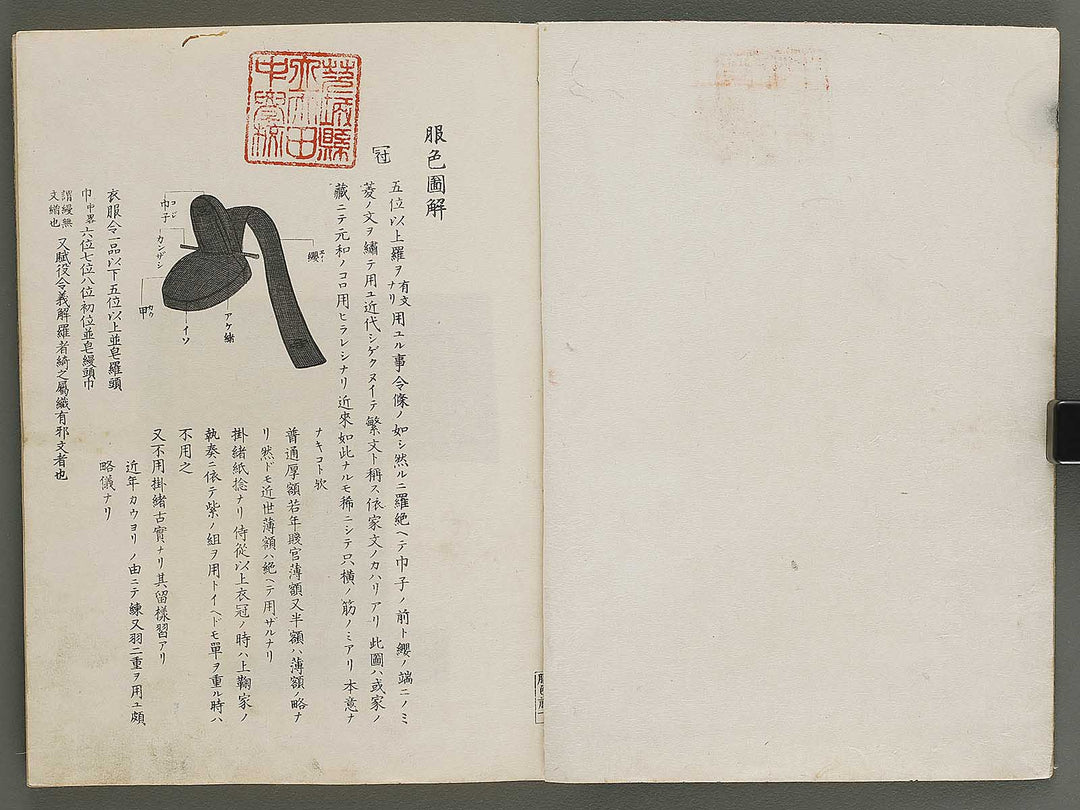 服色圖解
冠
五位以上羅ヲ有文ナリ用ユル事令條ノ如シ然ルニ羅絶ヘテ巾子ノ前ト纓ノ端ニノミ
菱ノ文ヲ繍テ用ユ近代シゲクヌイテ繁文ト稱ス依家文ノカハリアリ此圖ハ或家ノ
藏ニテ元和ノコロ用ヒラレシナリ近來如此ナルモ稀ニシテ只横ノ筋ノミアリ本意ナ
ナキコト歟
普通厚額若年賤官薄額又半額ハ薄額ノ略ナ
リ然ドモ近世薄額ハ絶ヘテ用ザルナリ
掛緒紙捻ナリ侍従以上衣冠ノ時ハ上鞠家ノ
執奏ニ依テ紫ノ組ヲ用トイヘドモ單ヲ重ル時ハ
不用之
又不用掛緒古實ナリ其留様習アリ
近年カウヨリノ由ニテ練又羽二重ヲ用ユ頗
略儀ナリ
纓
アケ緒
イソ
巾子
コジ
カンザシ
甲
カウ
衣服令一品以下五位以上並皂羅頭
巾中畧六位七位八位初位並皂縵頭巾
謂縵無
文繒也
又賦役令義解羅者綺之屬織有邪文者也